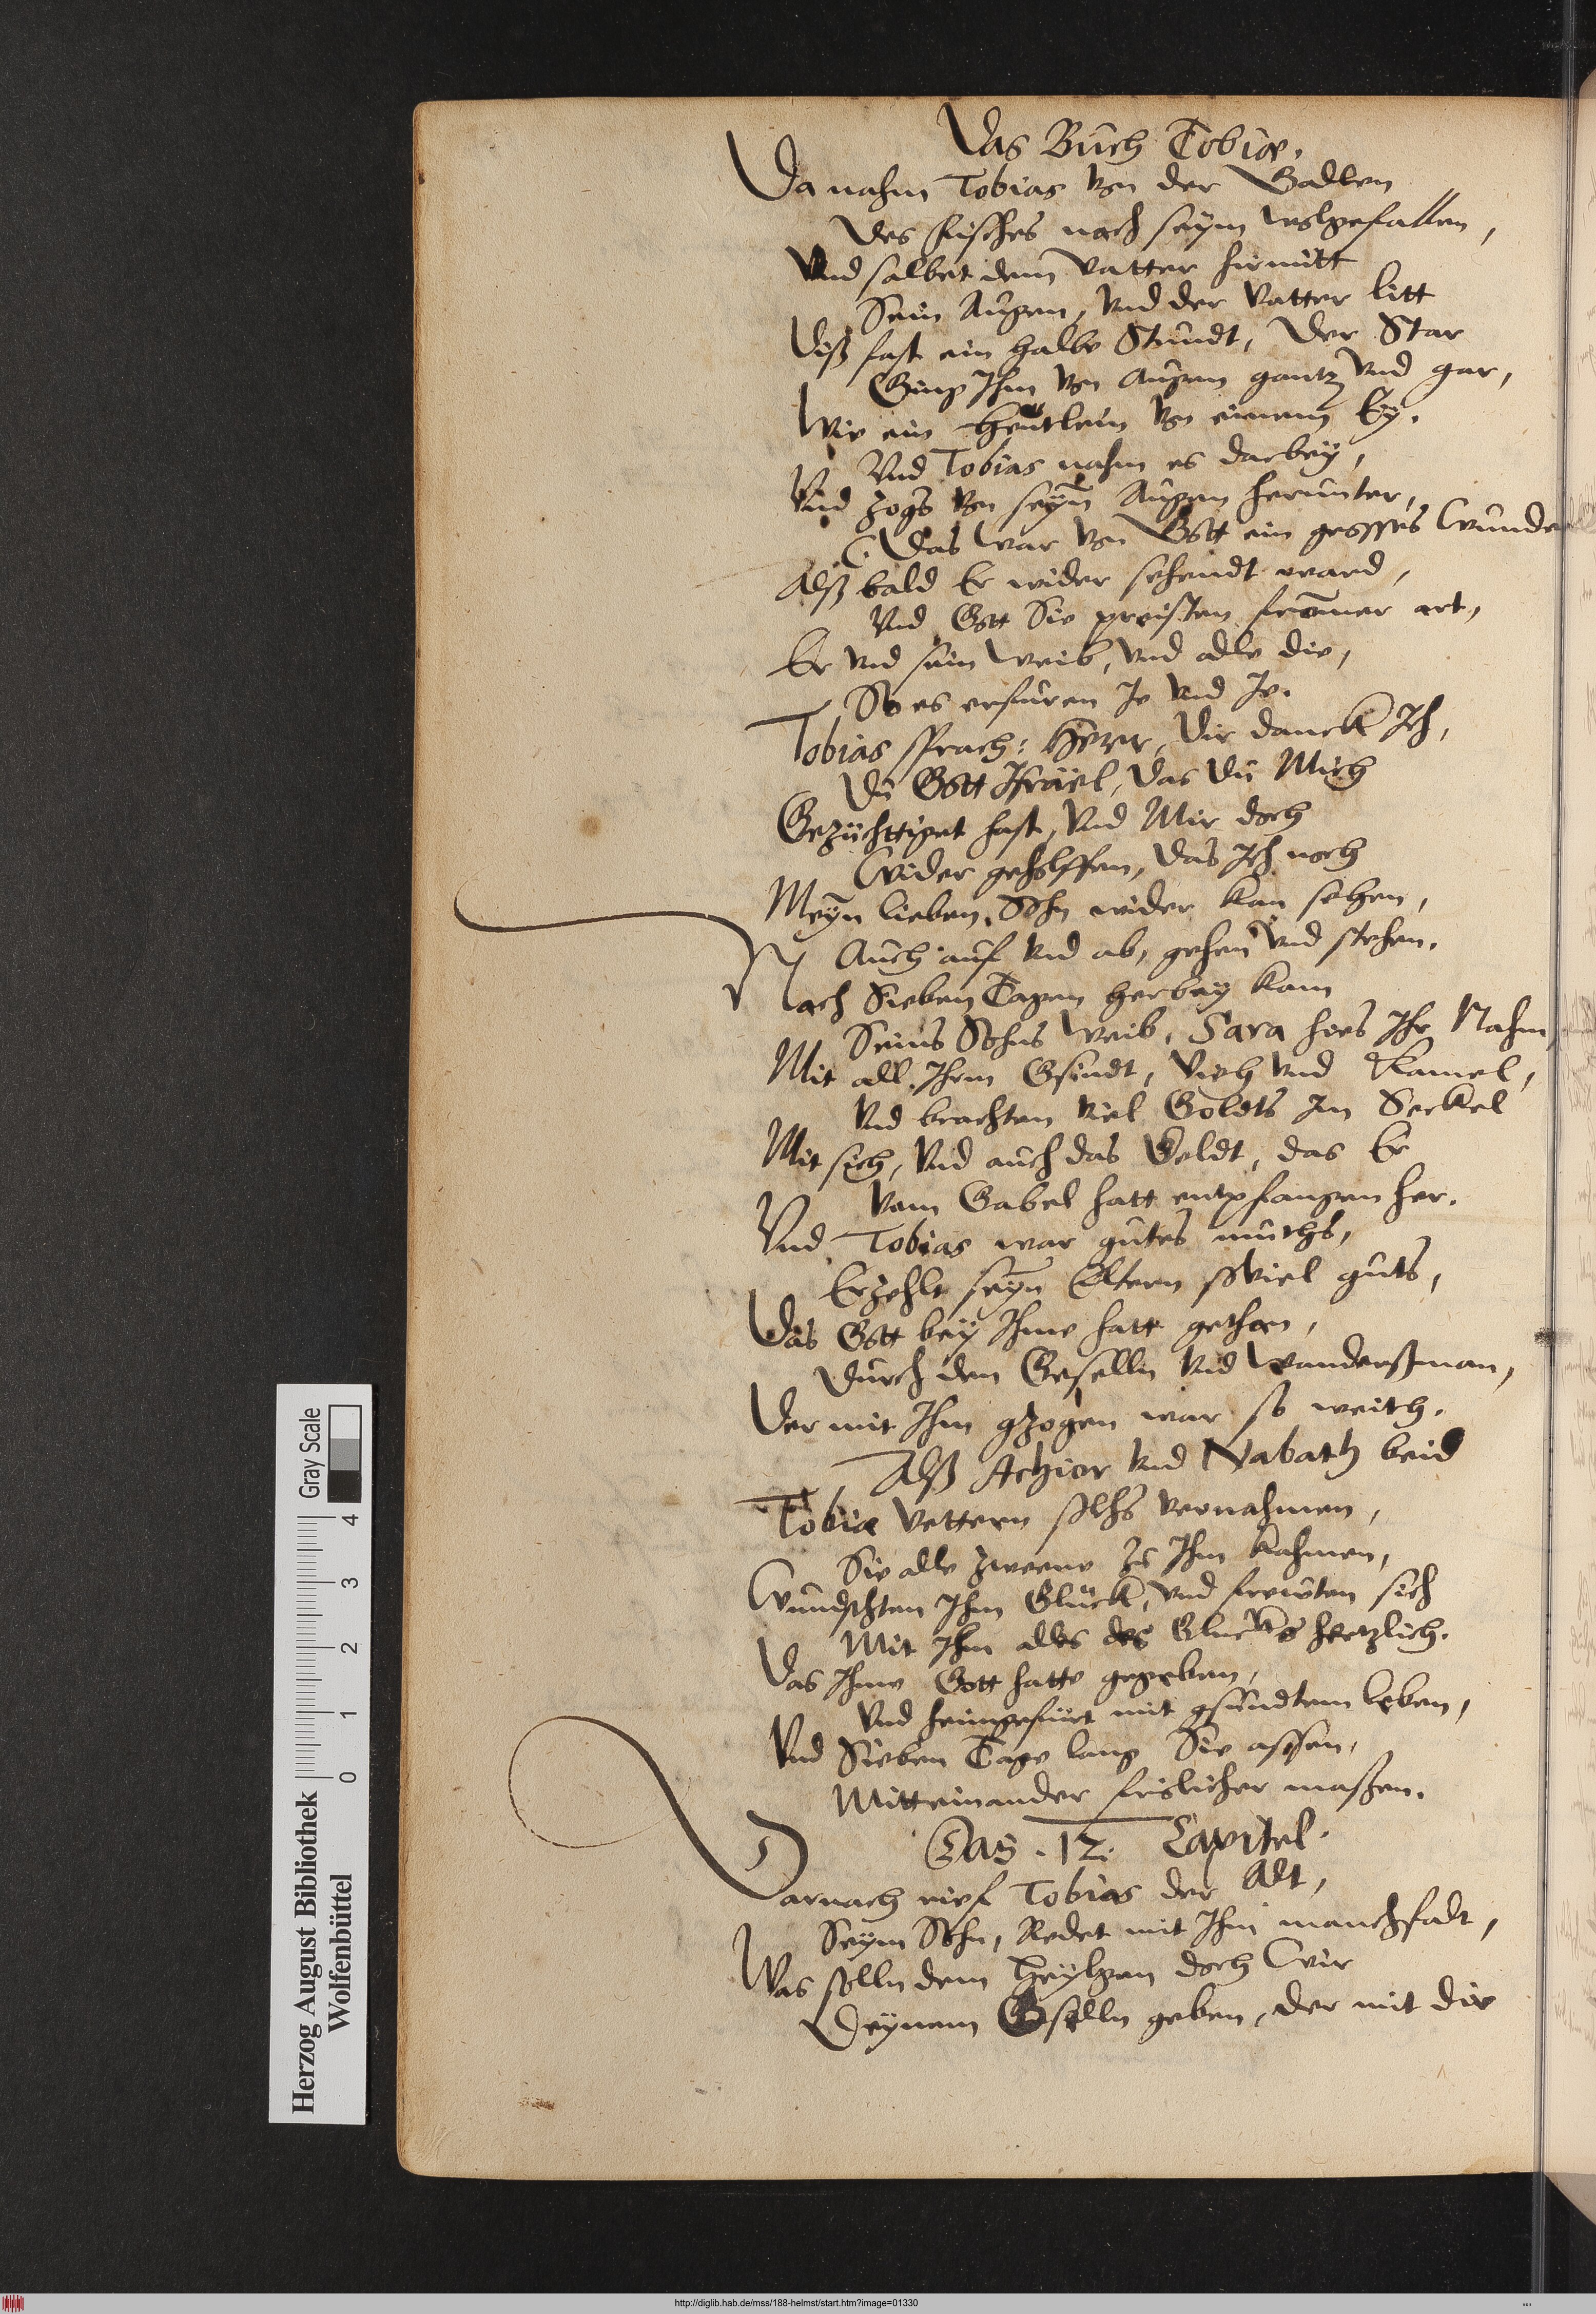 Das Buch Tobiæ.
Da nahm Tobias von der Gallen
Des fisches nach seym wolgefallen,
Vnd salbet dem Vatter hirmitt
Sein Augen, Vnd der Vatter litt
Diß fast ein halbe Stundt, Der Star
Ging Ihm von Augen gantz Vnd gar,
Wie ein Heutlein von einem Ey.
Vnd Tobias nahm es darbey,
Vnd zogs von seyn Augen herunter,
Das war von Gott ein grosses Wunder
Alß bald Er wider sehendt ward,
Vnd Gott Sie preisten from̄er art,
Er Vnd sein Weib, Vnd alle die,
So es erfuren Je Vnd Je.
Tobias sprach: Herr, Dir danck Ich,
Du Gott Israel, Das Du Mich
Gezüchttiget hast, Vnd Mir doch
Wider geholffen, Das Ich noch
Meyn lieben Sohn wider kan sehen,
Auch auf Vnd ab, gehen Vnd stehen.
Nach Sieben Tagen herbey kam
Seins Sohns Weib, Sara hies Ihr Nahm,
Mit all Ihrm Gsindt, Vieh Vnd Kamel,
Vnd brachten Viel Goldts Im Seckel
Mit sich, Vnd auch das Geldt, das Er
Vom Gabel hatt entpfangen her.
Vnd Tobias war gutes muths,
Erzehlt seyn Eltern soViel guts,
Das Gott bey Ihme hatt gethan,
Durch den Geselln Vnd Wanderßman,
Der mit Ihm gzogen war so weith.
Alß Achior Vnd Nabath beid
Tobiæ Vettern solchs Vernahmen,
Sie alle zweene zu Ihm kahmen,
Wundschten Ihm Glück, Vnd freuten sich
Mit Ihm alles des Glucks hertzlich.
Das Ihme Gott hatte gegeben,
Vnd heimgefürt mit gsundtem leben,
Vnd Sieben Tage lang Sie assen,
Mitteinander frölicher maßen.
Das .12. Capitel.
Darnach rief Tobias der Alt,
Seym Sohn, Redet mit Ihm manchfalt,
Was solln dem Heylgen doch Wir
Deynem Gselln geben, der mit dir
Herzog August Bibliothek
Wolfenbüttel
0 1 2 3 4
Gray Scale
http://diglib.hab.de/mss/188-helmst/start.htm?image=01330